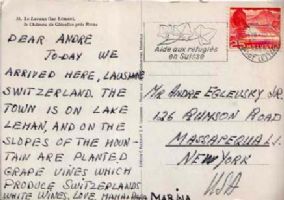 34. Le Lavaux (lac Léman),
le Château de Glérolles près Rivaz
DEAR ANDRE
TO-DAY WE
ARRIVED HERE, LAUSANNE
SWITZERLAND. THE
TOWN IS ON LAKE
LEMAN, AND ON THE
SLOPES OF THE MOUN-
TAIN ARE PLANTED
GRAPE VINES WHICH
PRODUCE SWITZERLANDS
WHITE WINES, LOVE, MAMA
MARINA
Aide aux réfugiés
en Suisse
MR ANDRE EGLEVSKY JR.
126 RUNSON ROAD
MASSAPEQUA L.I.
NEW YORK
USA